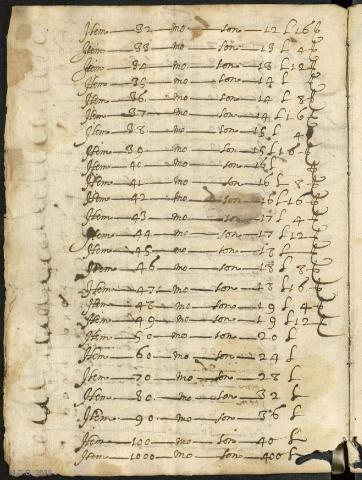 Item 32 mo son 12 L 16 ß
Item 33 mo son 13 L 4 ß
Item 34 mo son 13 L 12 ß
Item 35 mo son 14 L
Item 36 mo son 14 L 8 ß
Item 37 mo son 14 L 16 ß
Item 38 mo son 15 L 4 ß
Item 39 mo son 15 L 16 ß
Item 40 mo son 16 L
Item 41 mo son 16 L 8 ß
Item 42 mo son 16 L 16 ß
Item 43 mo son 17 L 4 ß
Item 44 mo son 17 L 12 ß
Item 45 mo son 18 L
Item 46 mo son 18 L 8 ß
Item 47 mo son 18 L 16 ß
Item 48 mo son 19 L 4 ß
Item 49 mo son 19 L 12 ß
Item 50 mo son 20 L
Item 60 mo son 24 L
Item 70 mo son 28 L
Item 80 mo son 32 L
Item 90 mo son 36 L
Item 100 mo son 40 L
Item 1000 mo son 400 L